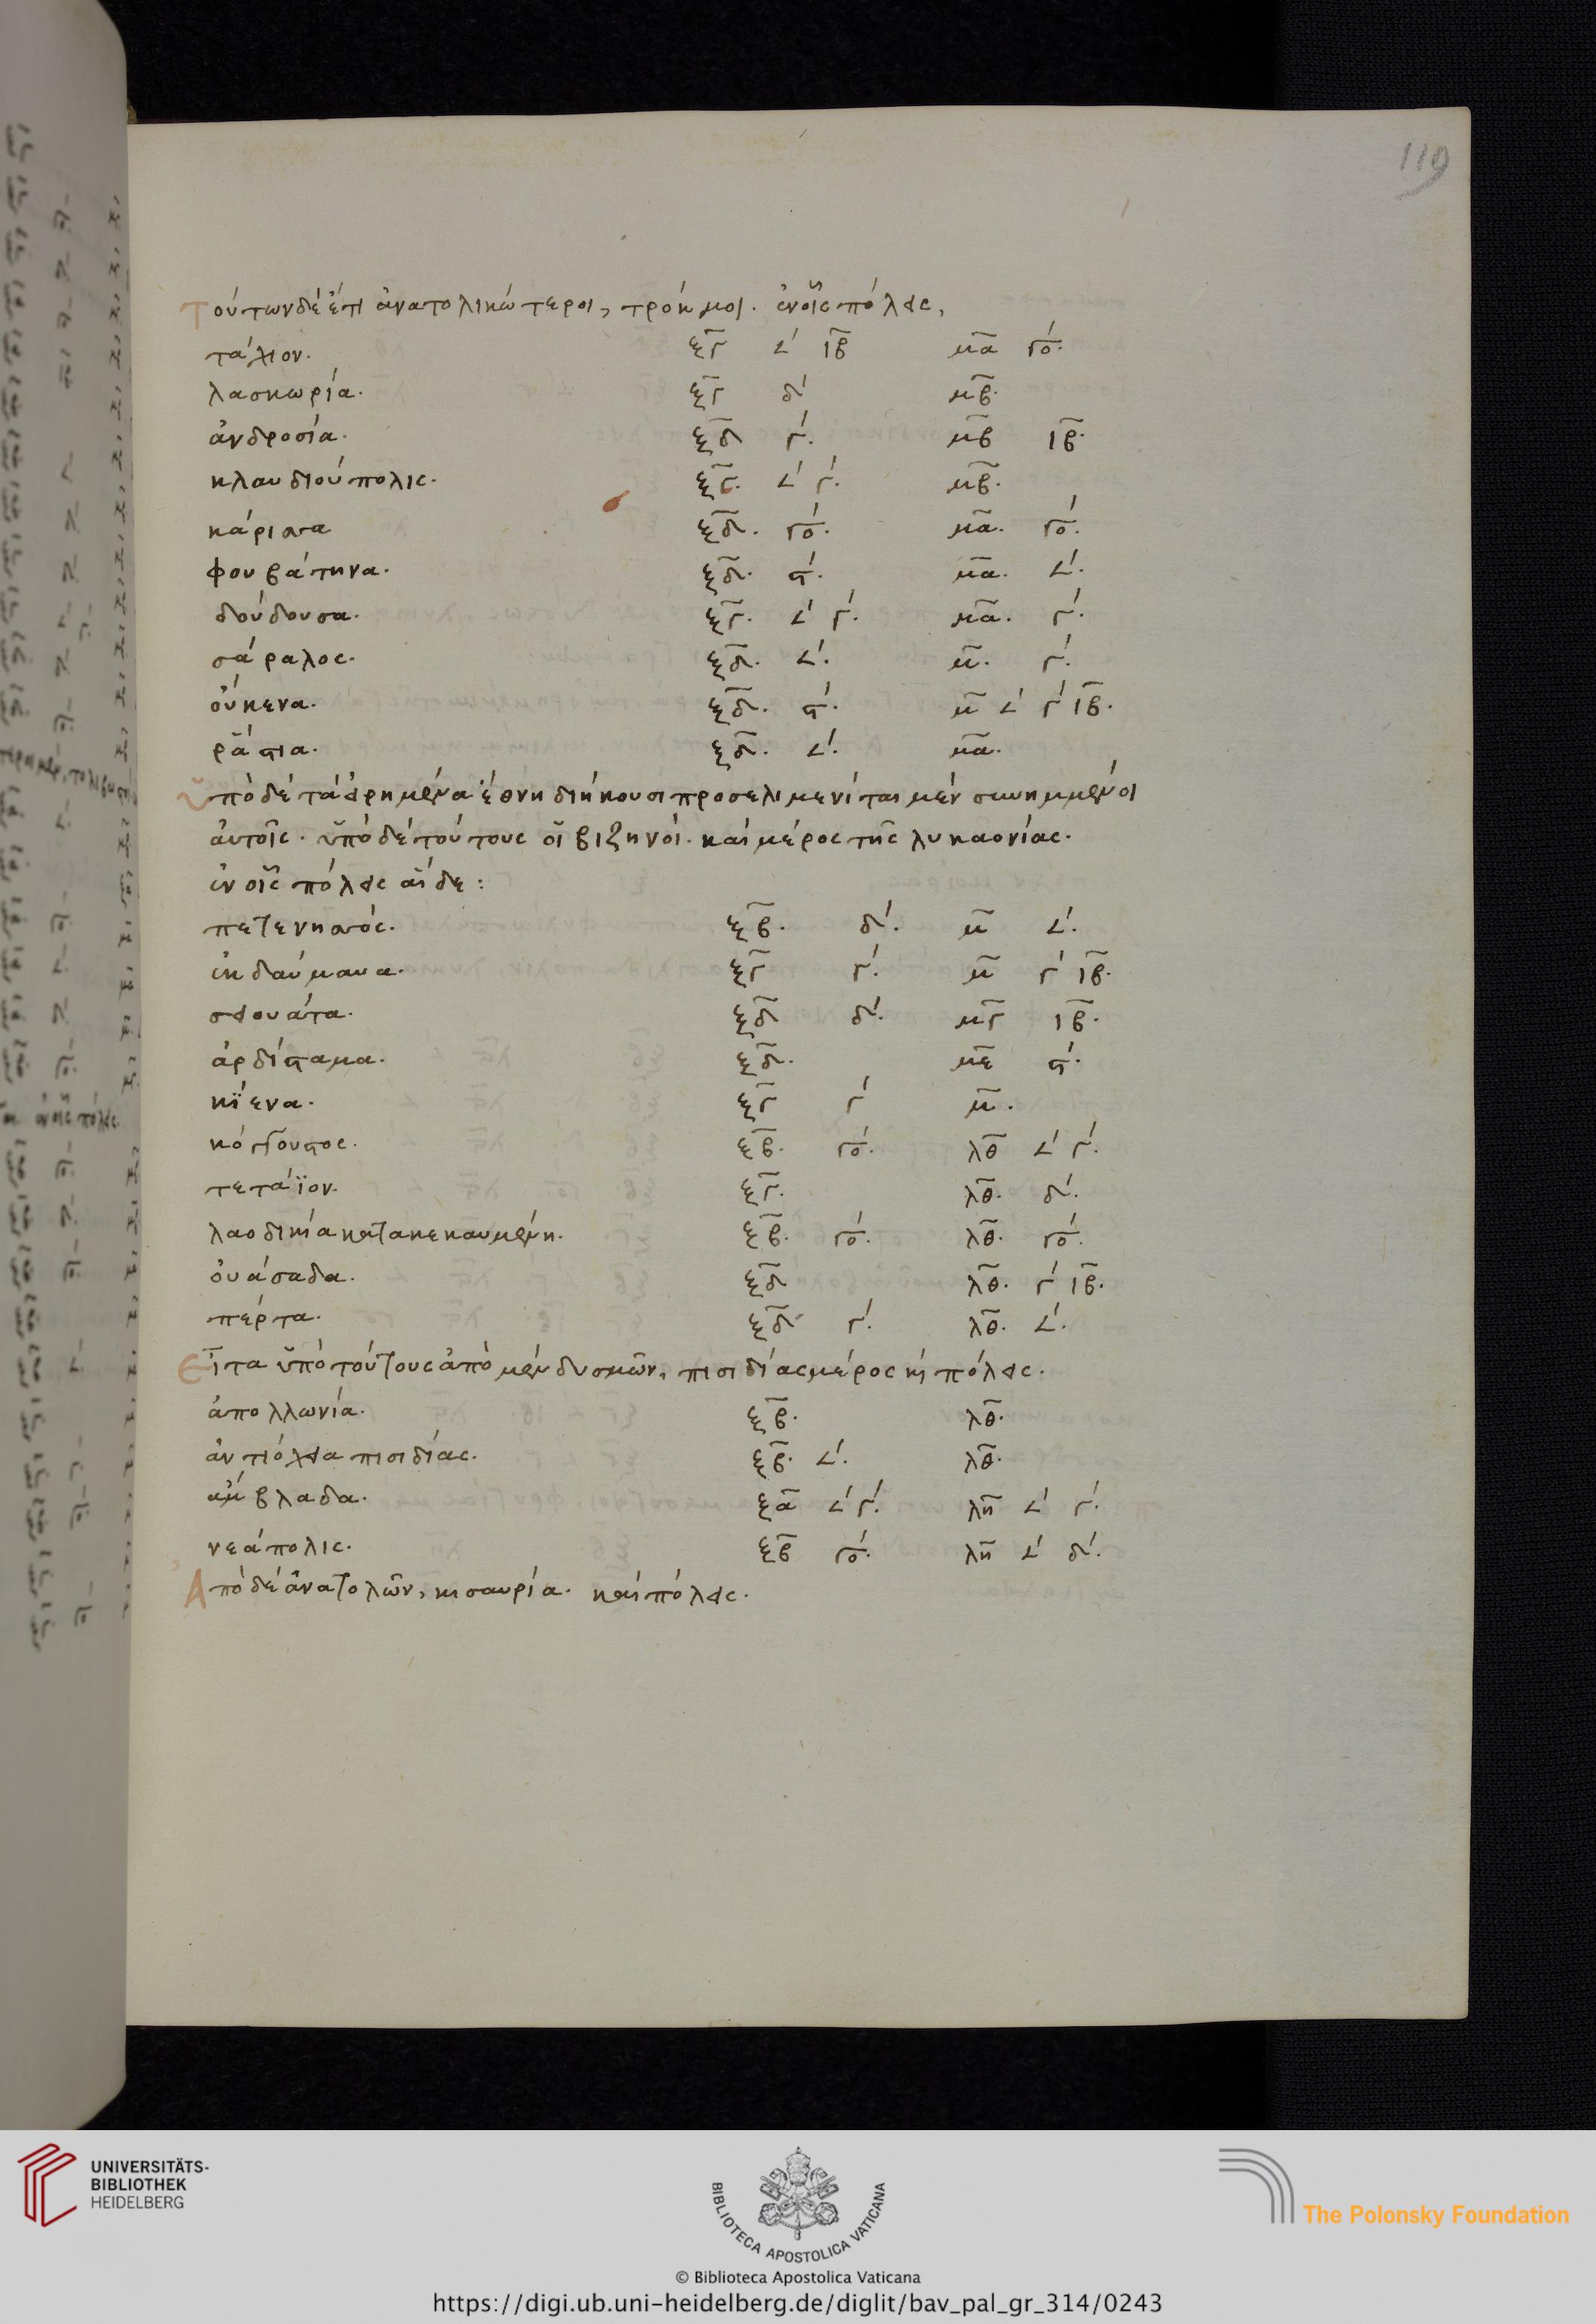 119
Τούτων δὲ ἔτι ἀνατολικώτεροι, τρόκμοι. ἐν οἷς πόλεις,
τάλιον. ξγ ∠ ιβ μα γο.
λασκωρία. ξγ δ μβ.
ἀνδροσία. ξδ γ. μβ ιβ.
κλαυδιούπολις. ξγ. ∠ γ. μβ.
κάρισσα ξδ. γο. μα. γο.
φουβάτηνα. ξδ. ϛ. μα. ∠.
δούδουσα. ξγ. ∠ γ. μα. γ.
σάραλος. ξδ. ∠. μ. γ.
οὔκενα. ξδ. ϛ. μ ∠ γ ιβ.
ῥάστια. ξδ. ∠. μα.
ὑπὸ δὲ τὰ εἰρημένα ἔθνη διήκουσι προσειλιμενίται μὲν συνημμένοι
αὐτοῖς. ὑπὸ δὲ τούτους οἱ βιζηνοί. καὶ μέρος τῆς λυκαονίας.
ἐν οἷς πόλεις αἵδε:
πετενησσός. ξβ. δ. μ ∠.
ἐκδαύμαυα. ξγ γ. μ γ ιβ.
σειουάτα. ξδ δ. μγ ιβ.
ἀρδίσταμα. ξδ. με ϛ.
κίϊενα. ξγ γ μ.
κόγγουστος. ξβ. γο. λθ ∠ γ.
τετάϊον. ξγ. λθ. δ.
λαοδικία κατακεκαυμένη. ξβ. γο. λθ. γο.
οὐάσαδα. ξδ λθ. γ ιβ.
πέρτα. ξδ γ. λθ. ∠.
Εἶτα ὑπὸ τούτους ἀπὸ μὲν δυσμῶν, πισιδίας μέρος κὶ πόλεις.
ἀπολλωνία. ξβ. λθ.
ἀντιόχεια πισιδίας. ξβ. ∠. λθ.
ἄμβλαδα. ξα ∠ γ. λη ∠ γ.
νεάπολις. ξβ γο. λη ∠ δ.
Ἀπὸ δὲ ἀνατολῶν, κισαυρία. καὶ πόλεις.
UNIVERSITÄTS-
BIBLIOTHEK
HEIDELBERG
BIBLIOTECA APOSTOLICA VATICANA
The Polonsky Foundation
© Biblioteca Apostolica Vaticana
https://digi.ub.uni-heidelberg.de/diglit/bav_pal_gr_314/0243